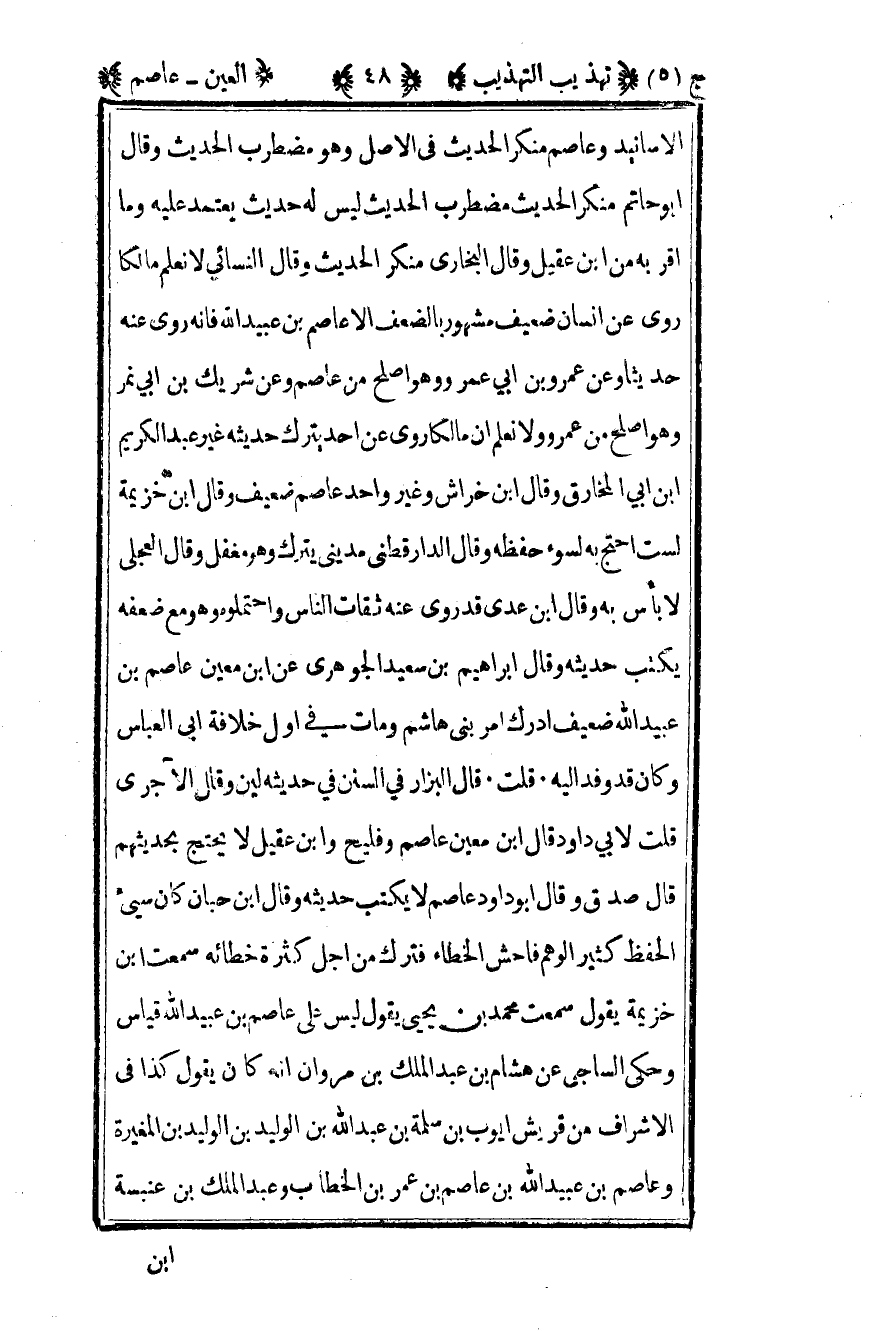 ج (٥) تهذيب التهذيب ٤٨ العين - عاصم
الاسانيد وعاصم منكر الحديث فى الاصل وهو مضطرب الحديث وقال
ابو حاتم منكر الحديث مضطرب الحديث ليس له حديث يعتمد عليه وما
اقر به من ابن عقيل وقال البخارى منكر الحديث وقال النسائي لا نعلم مالكا
روى عن انسان ضعيف مشهور بالضعف الا عاصم بن عبيدالله فانه روى عنه
حديثا وعن عمرو بن ابي عمرو وهو اصلح من عاصم وعن شريك بن ابي نمر
وهو اصلح من عمرو ولا نعلم ان مالكا روى عن احد يترك حديثه غير عبد الكريم
ابن ابي المخارق وقال ابن خراش وغير واحد عاصم ضعيف وقال ابن خزيمة
لست احتج به لسوء حفظه وقال الدارقطنى مدينى يترك وهو مغفل وقال العجلى
لا بأس به وقال ابن عدى قد روى عنه ثقات الناس واحتملوه وهو مع ضعفه
يكتب حديثه وقال ابراهيم بن سعيد الجوهرى عن ابن معين عاصم بن
عبيد الله ضعيف ادرك امر بنى هاشم ومات في اول خلافة ابى العباس
وكان قد وفد اليه • قلت • قال البزار في السنن في حديثه لين وقال الآجرى
قلت لابي داود قال ابن معين عاصم وفليح وابن عقيل لا يحتج بحديثهم
قال صدق وقال ابو داود عاصم لا يكتب حديثه وقال ابن حبان كان سيئ
الحفظ كثير الوهم فاحش الخطاء فترك من اجل كثرة خطائه سمعت ابن
خزيمة يقول سمعت محمد بن يحيى يقول ليس على عاصم بن عبيد الله قياس
وحكى الساجى عن هشام بن عبد الملك بن مروان انه كان يقول كذا فى
الاشراف من قريش ايوب بن سلمة بن عبدالله بن الوليد بن الوليد بن المغيرة
وعاصم بن عبيدالله بن عاصم بن عمر بن الخطاب وعبد الملك بن عنبسة
ابن